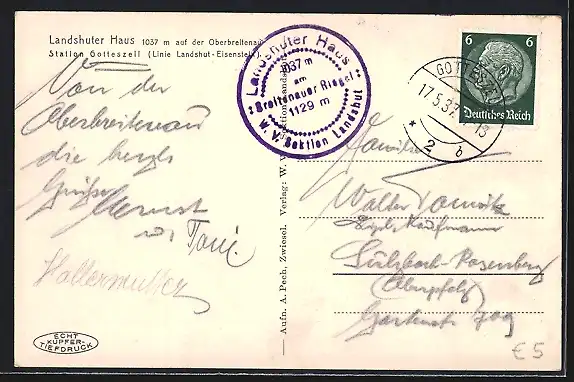 Landshuter Haus 1037 m auf der Oberbreitenau
Station Gotteszell (Linie Landshut-Eisenstein).
Von der
Oberbreitenau
die herzl.
Grüße
Toni
Hallermutter
ECHT
KUPFER-
TIEFDRUCK
Aufn. A. Pech, Zwiesel. Verlag: W. V. Sektion Landshut
Landshuter Haus
1037 m
am
Breitenauer Riegel
1129 m
W. V. Sektion Landshut
6 6
Deutsches Reich
GOTTESZELL
17.5.37
13
* 2 b
Familie
Walter
Dipl. Kaufmann
Sulzbach-Rosenberg
(Oberpfalz)
Gartenstr. 709
€ 5